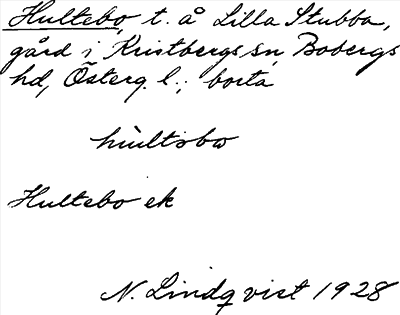 Hultebo, t. å Lilla Stubba,
gård i Kristbergs sn, Bobergs
hd, Österg. l.; borta
hùltsbω
Hultebo ek
N. Lindqvist 1928